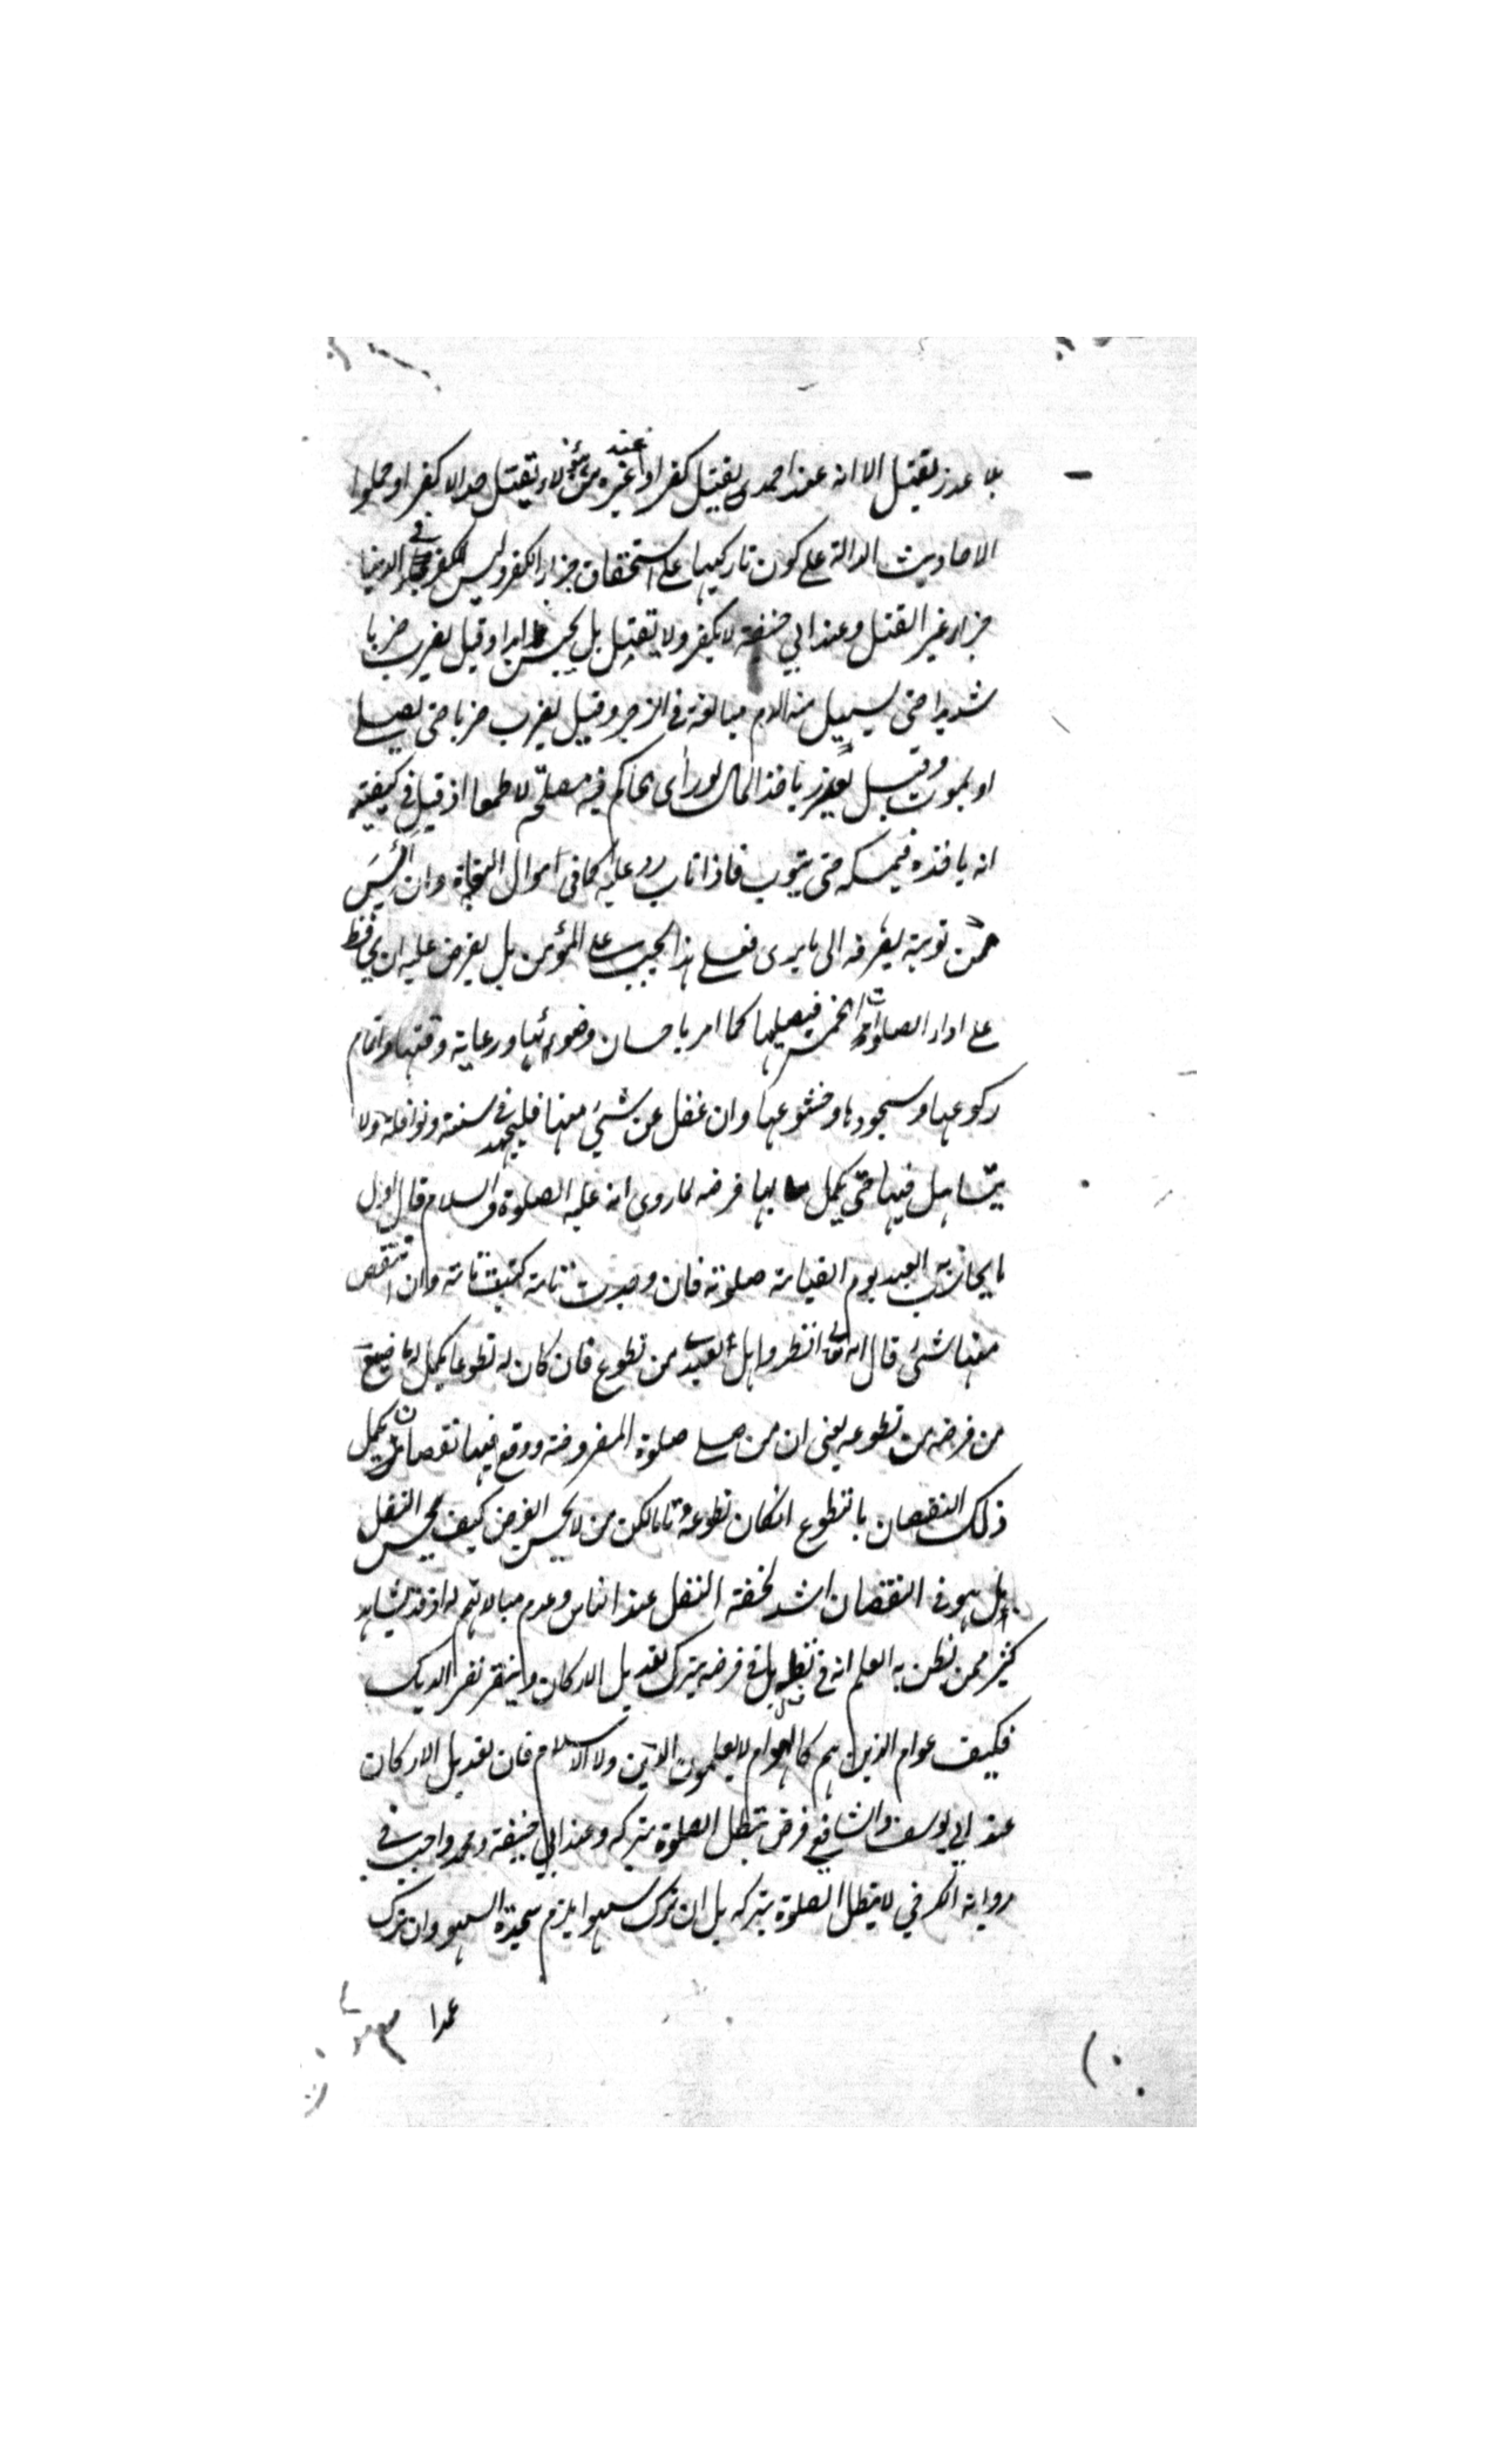 بلا عذر يقتل الا انه عند احمد يقتل كفرا وعند غيره من الائمة يقتل حدا لا كفرا وحملوا
الاحاديث الدالة على كون تاركيها على استحقاق جزاء الكفر وليس للكفر في الدنيا
جزاء غير القتل وعند ابي حنيفة لا يكفر ولا يقتل بل يحبس ابدا وقيل يضرب ضربا
شديدا حتى يسيل منه الدم مبالغة في الزجر وقيل يضرب ضربا حتى يصلي
او يموت وقيل يعزر باخذ المال لو رأى الحاكم فيه مصلحة لا طمعا اذ قيل في كيفيته
انه ياخذه فيمسكه حتى يتوب فاذا تاب رد عليه كما في اموال البغاة وان أيس
من توبته يصرفه الى ما يرى فعلى هذا يجب على المؤمن بل يفرض عليه ان يحافظ
على اداء الصلوات الخمس فيصليها كما امر باحسان وضوئها ورعاية وقتها واتمام
ركوعها وسجودها وخشوعها وان غفل عن شيئ منها فليجتهد في سننه ونوافله ولا
يتساهل فيها حتى يكمل بها فرضه لما روى انه عليه الصلوة والسلام قال اول
ما يحاسب به العبد يوم القيامة صلوته فان وجدت تامة كتبت تامة وان انتقص
منها شئ قال الله تعالى انظروا هل لعبدي من تطوع فان كان له تطوعا يكمل له ما ضيع
من فرضه من تطوعه يعنى ان من صلى صلوة المفروضة ووقع فيها نقصان يكمل
ذلك النقصان بالتطوع انكان تطوعه تاما لكن من لا يحسن الفرض كيف يحسن النفل
بل هو في النقصان اشد لخفة النفل عند الناس وعدم مبالاتهم له اذ قد يشاهد
كثير ممن يظن به العلم انه في نفله بل في فرضه يترك تعديل الاركان وينقر نقر الديك
فكيف عوام الذين هم كالهوام لا يعلمون الدين ولا الاسلام فان تعديل الاركان
عند ابي يوسف والشافعي فرض تبطل الصلوة بتركه وعند ابي حنيفة ومحمد واجب في
رواية الكرخي لا تبطل الصلوة بتركه بل ان ترك سهوا يلزم سجدة السهو وان ترك
عمدا